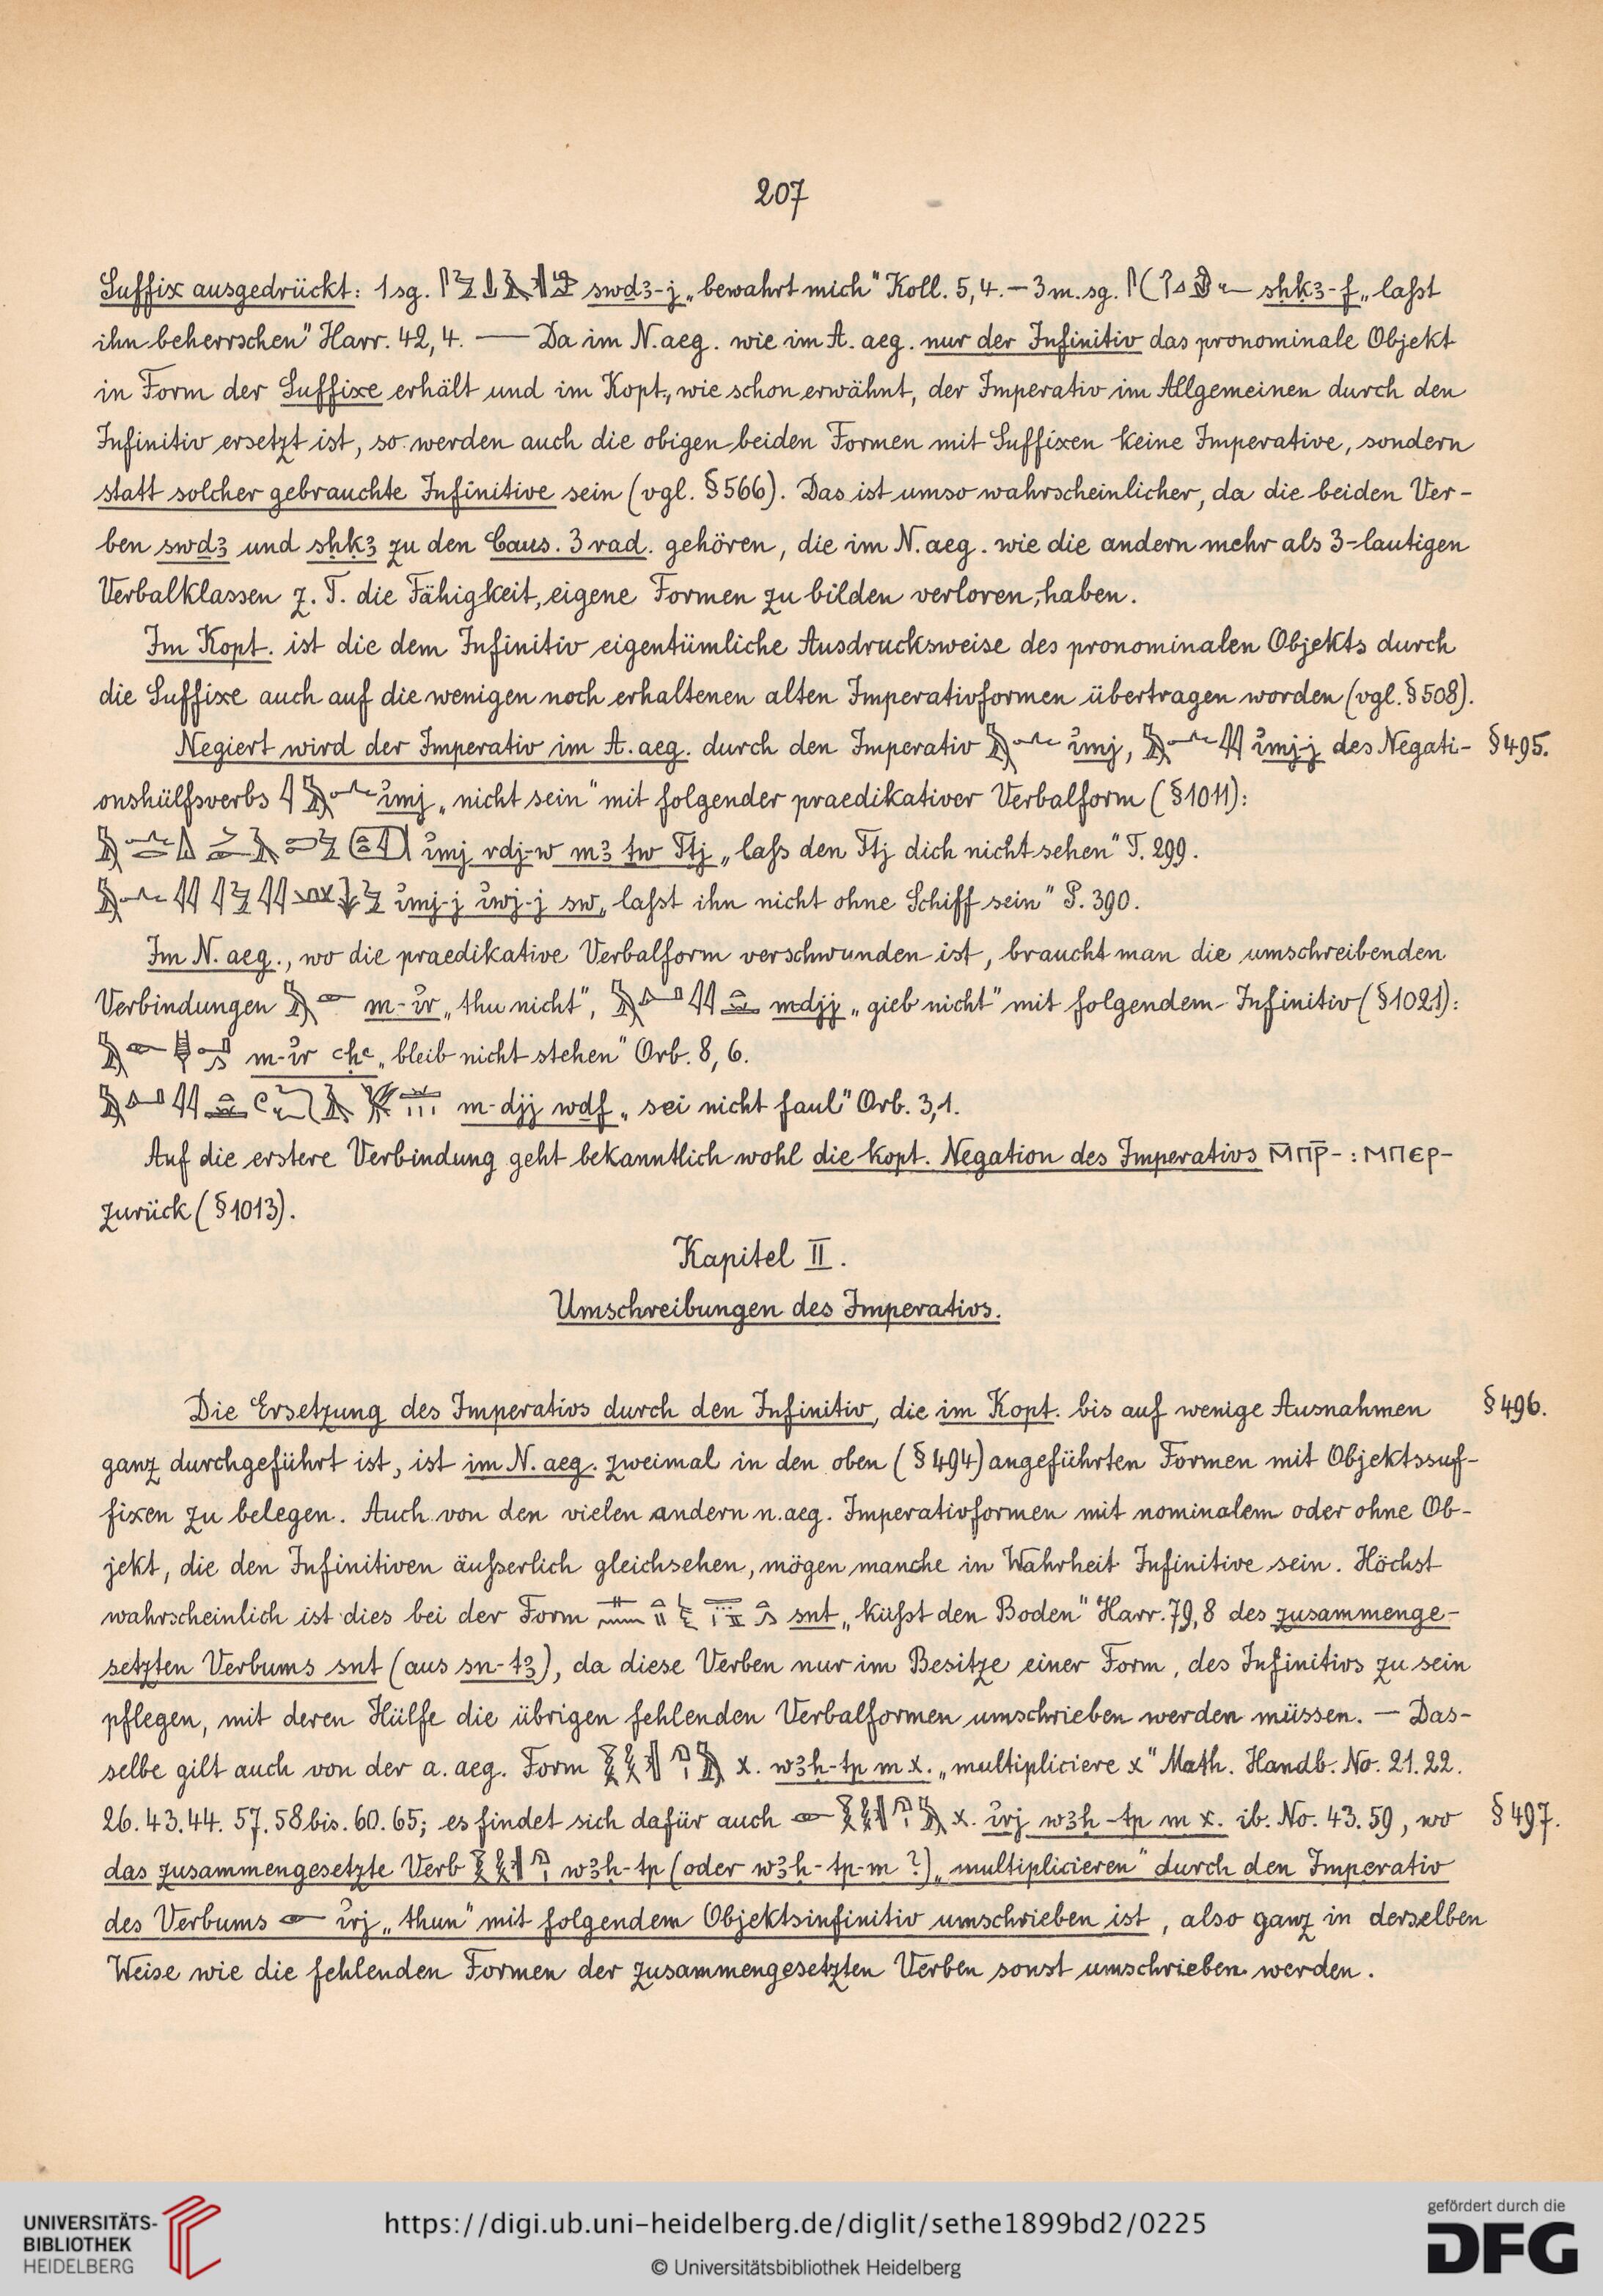 207
Suffix ausgedrückt: 1 sg. swdꜣ-j „bewahrt mich“ Koll. 5,4. — 3 m. sg. sḥḳꜣ-f „laßt
ihn beherrschen“ Harr. 42,4. — Da im N. aeg. wie im A. aeg. nur der Infinitiv das pronominale Objekt
in Form der Suffixe erhält und im Kopt., wie schon erwähnt, der Imperativ im Allgemeinen durch den
Infinitiv ersetzt ist, so werden auch die obigen beiden Formen mit Suffixen keine Imperative, sondern
statt solcher gebrauchte Infinitive sein (vgl. § 566). Das ist umso wahrscheinlicher, da die beiden Ver-
ben swdꜣ und sḥḳꜣ zu den Caus. 3 rad. gehören, die im N. aeg. wie die andern mehr als 3-lautigen
Verbalklassen z. T. die Fähigkeit, eigene Formen zu bilden verloren, haben.
Im Kopt. ist die dem Infinitiv eigentümliche Ausdrucksweise des pronominalen Objekts durch
die Suffixe auch auf die wenigen noch erhaltenen alten Imperativformen übertragen worden (vgl. § 508).
Negiert wird der Imperativ im A. aeg. durch den Imperativ ı͗mj, ı͗mj-j des Negati- § 495.
onshülfsverbs ı͗mj „nicht sein“ mit folgender praedikativer Verbalform (§ 1011):
ı͗mj rdj-w mꜣ ṯw Ttj „laß den Ttj dich nicht sehen“ T. 299.
ı͗mj-j ı͗wj-j sw „laßt ihn nicht ohne Schiff sein“ P. 390.
Im N. aeg., wo die praedikative Verbalform verschwunden ist, braucht man die umschreibenden
Verbindungen m-ı͗r „thu nicht“, mdjj „gieb nicht“ mit folgendem Infinitiv (§ 1021):
m-ı͗r ꜥḥꜥ „bleib nicht stehen“ Orb. 8,6.
m-djj wdf „sei nicht faul“ Orb. 3,1.
Auf die erstere Verbindung geht bekanntlich wohl die kopt. Negation des Imperativs ⲙ̅ⲡⲣ̅- : ⲙⲡⲉⲣ-
zurück (§ 1013).
Kapitel II.
Umschreibungen des Imperativs.
Die Ersetzung des Imperativs durch den Infinitiv, die im Kopt. bis auf wenige Ausnahmen § 496.
ganz durchgeführt ist, ist im N. aeg. zweimal in den oben (§ 494) angeführten Formen mit Objektssuf-
fixen zu belegen. Auch von den vielen andern n. aeg. Imperativformen mit nominalem oder ohne Ob-
jekt, die den Infinitiven äußerlich gleichsehen, mögen manche in Wahrheit Infinitive sein. Höchst
wahrscheinlich ist dies bei der Form snt „küßt den Boden“ Harr. 79,8 des zusammenge-
setzten Verbums snt (aus sn-tꜣ), da diese Verben nur im Besitze einer Form, des Infinitivs zu sein
pflegen, mit deren Hülfe die übrigen fehlenden Verbalformen umschrieben werden müssen. — Das-
selbe gilt auch von der a. aeg. Form x. wꜣḥ-tp m x. „multipliciere x“ Math. Handb. No. 21. 22.
26. 43. 44. 57. 58 bis. 60. 65; es findet sich dafür auch x. ı͗rj wꜣḥ-tp m x. ib. No. 43. 59, wo § 497.
das zusammengesetzte Verb wꜣḥ-tp (oder wꜣḥ-tp-m ?) „multiplicieren“ durch den Imperativ
des Verbums ı͗rj „thun“ mit folgendem Objektsinfinitiv umschrieben ist, also ganz in derselben
Weise wie die fehlenden Formen der zusammengesetzten Verben sonst umschrieben werden.
UNIVERSITÄTS-
BIBLIOTHEK
HEIDELBERG
https://digi.ub.uni-heidelberg.de/diglit/sethe1899bd2/0225
© Universitätsbibliothek Heidelberg
gefördert durch die
DFG